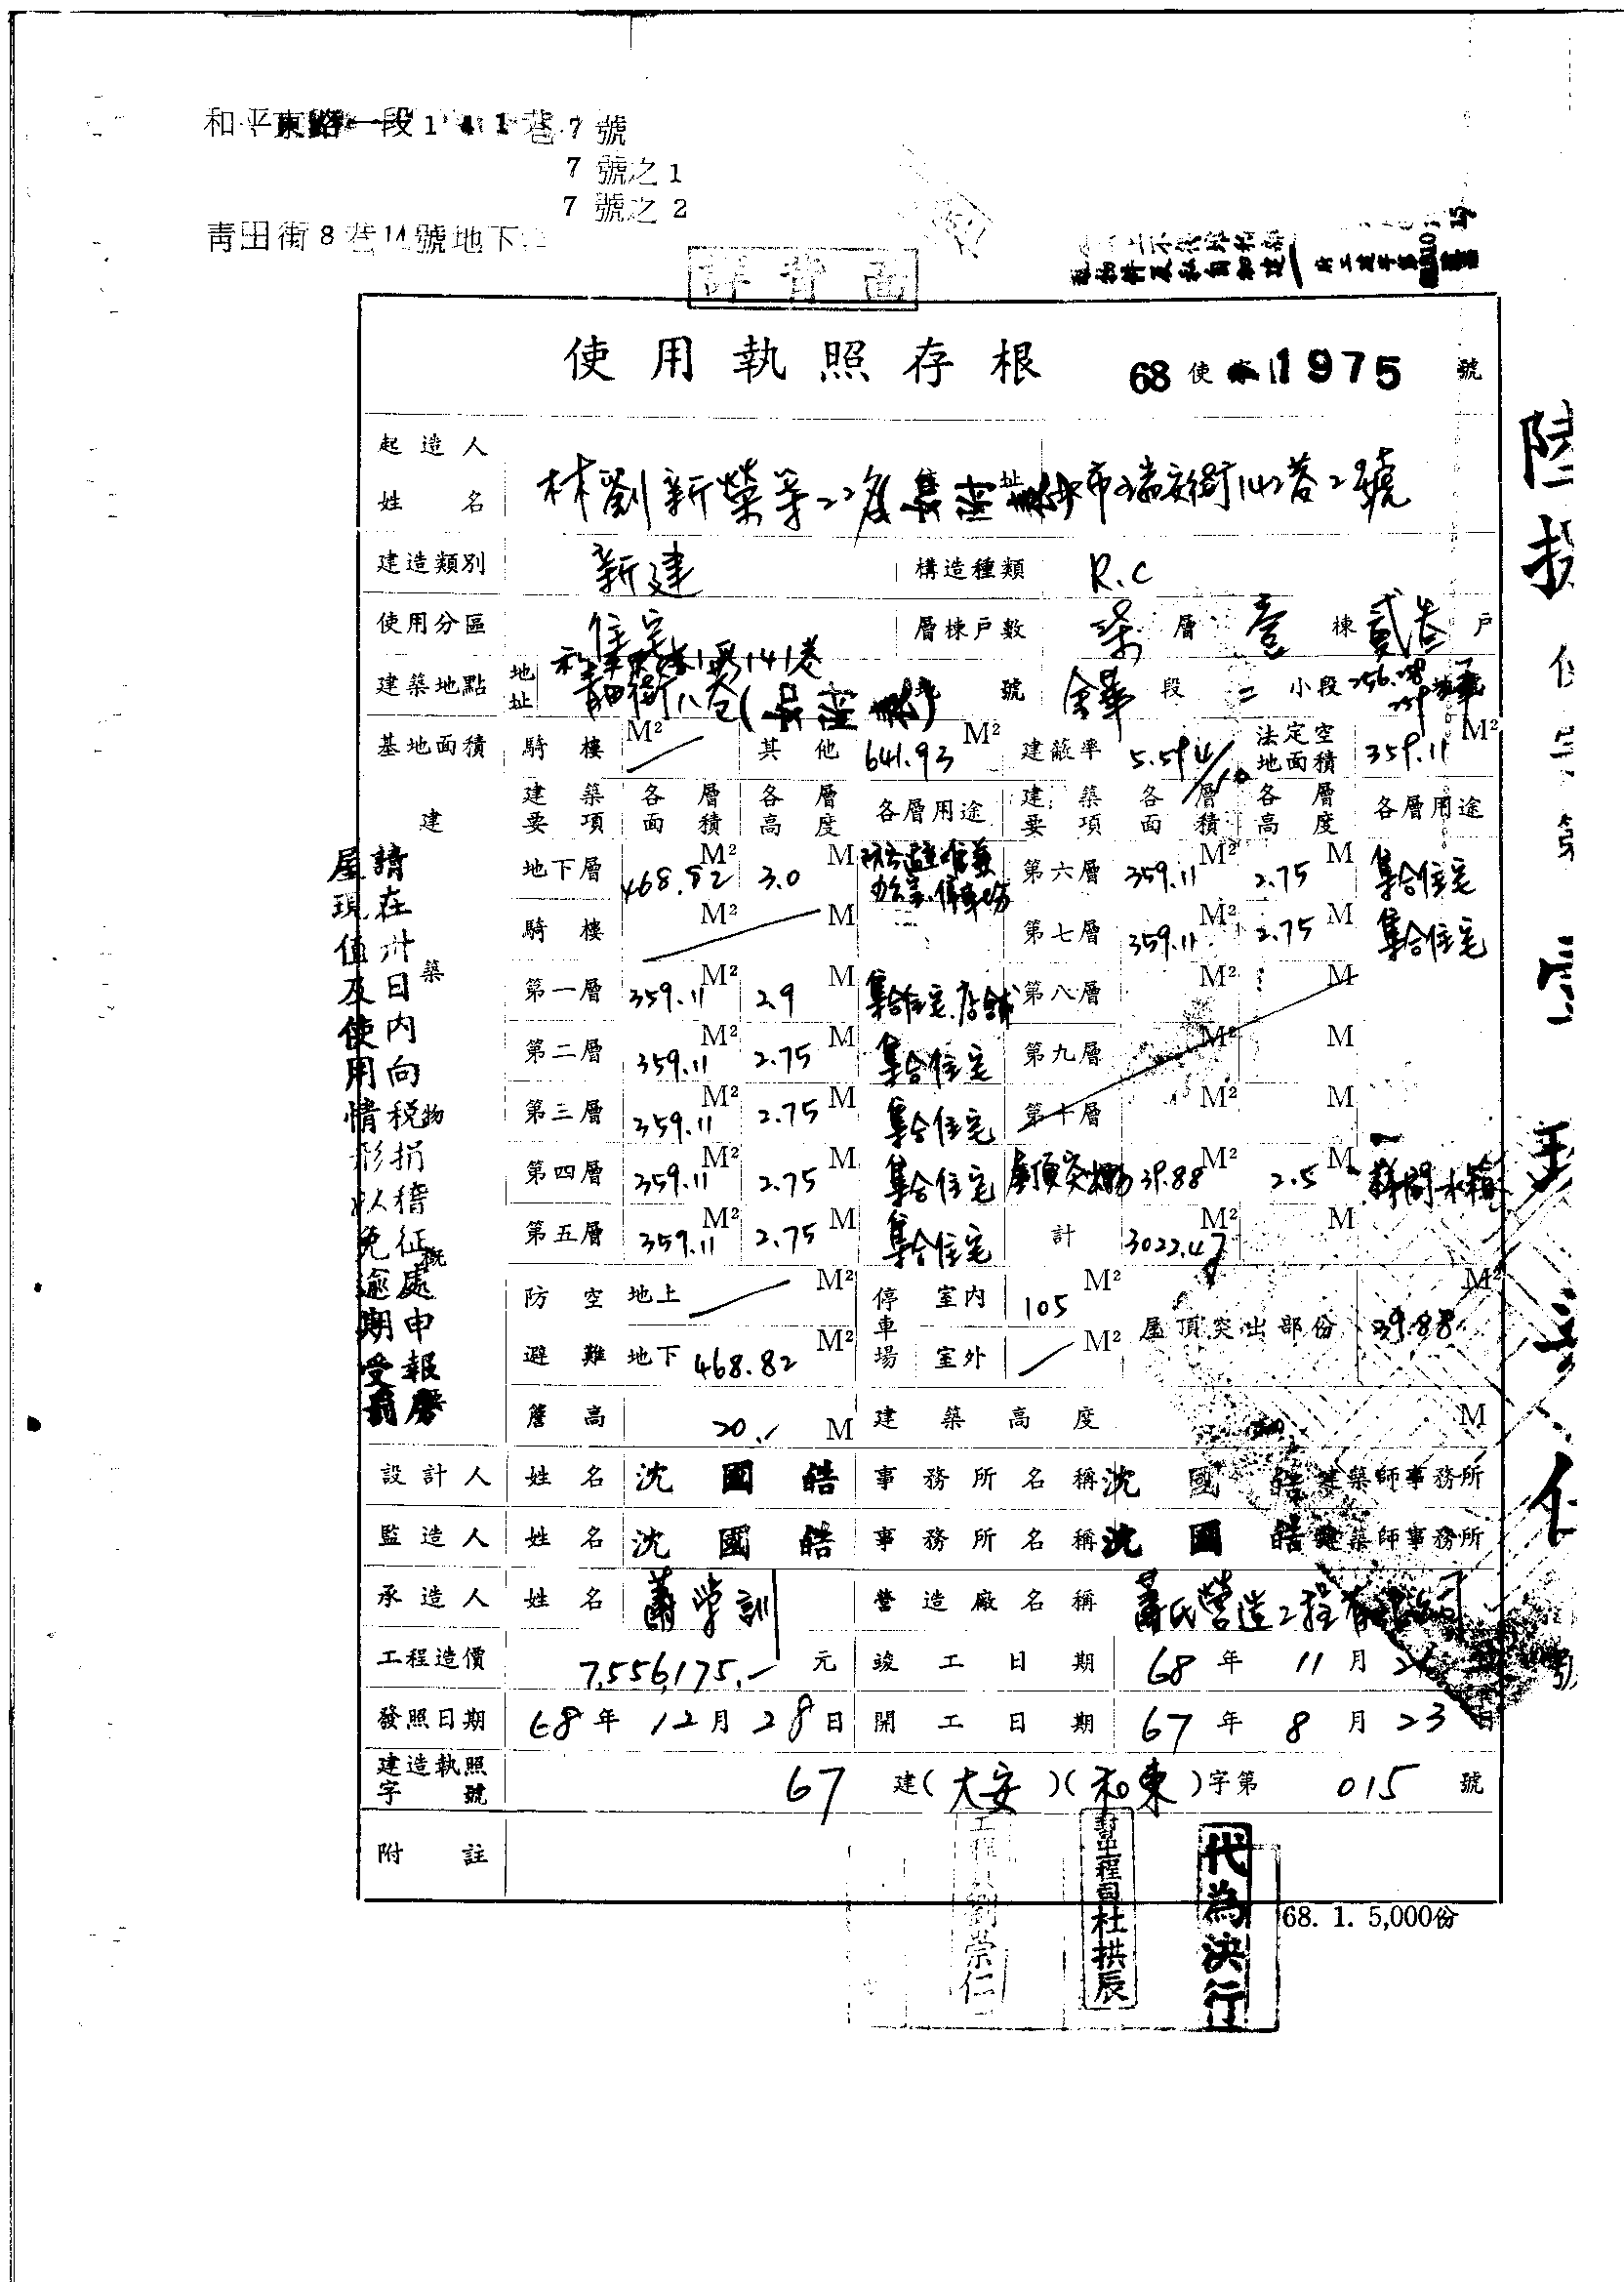 和平東路一段141巷7號
7號之1
7號之2
青田街8巷14號地下
詳背面
使用執照存根 68使 1975號
起造人姓名 林劉新榮等22名 住址 市瑞安街142巷2號
建造類別 新建 構造種類 R.C
使用分區 住宅 層棟戶數 柒層 壹棟 貳叁戶
建築地點 地址 和平東路1段141巷
青田街八巷 地號 金華段 二小段
基地面積 騎樓 M² 其他 641.93 M² 建蔽率 5.594/10 法定空地面積 359.11 M²
建築要項 各層面積 各層高度 各層用途 建築要項 各層面積 各層高度 各層用途
建築物概
地下層 468.82 M² 3.0 M 防空避難室兼辦公室.停車場 第六層 359.11 M² 2.75 M 集合住宅
騎樓 M² M 第七層 359.11 M² 2.75 M 集合住宅
第一層 359.11 M² 2.9 M 集合住宅.店舖 第八層 M² M
第二層 359.11 M² 2.75 M 集合住宅 第九層 M² M
第三層 359.11 M² 2.75 M 集合住宅 第十層 M² M
第四層 359.11 M² 2.75 M 集合住宅 屋頂突出物 39.88 M² 2.5 M 梯間水箱
第五層 359.11 M² 2.75 M 集合住宅 計 3022.47 M² M
防空避難 地上 M² 停車場 室內 105 M² 屋頂突出部份 39.88 M²
地下 468.82 M² 室外 M²
簷高 20.- M 建築高度 M
設計人 姓名 沈國皓 事務所名稱 沈國皓建築師事務所
監造人 姓名 沈國皓 事務所名稱 沈國皓建築師事務所
承造人 姓名 蕭學訓 營造廠名稱 蕭氏營造工程有限公司
工程造價 7,556,175.- 元 竣工日期 68年 11月
發照日期 68年12月28日 開工日期 67年8月23日
建造執照字號 67建(大安)(和東)字第 015 號
附註
請在卅日內向稅捐稽征處申報房
屋現值及使用情形以免逾期受罰
工程 劉崇仁
副工程司杜拱辰
代為決行
68. 1. 5,000份